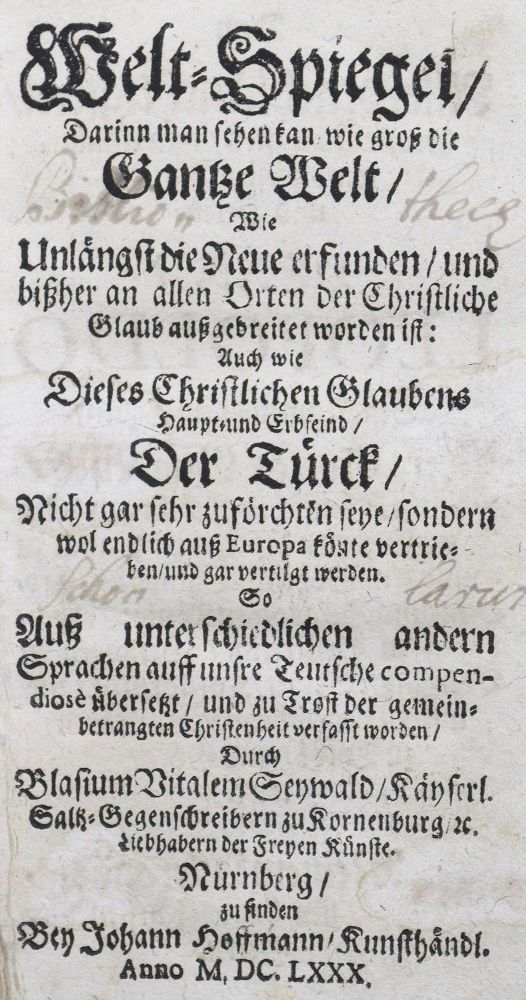 Welt-Spiegel/
Darinn man sehen kan wie groß die
Gantze Welt/
Bibliotheca
Wie
Unlängst die Neue erfunden/und
bißher an allen Orten der Christliche
Glaub außgebreitet worden ist:
Auch wie
Dieses Christlichen Glaubens
Haupt-und Erbfeind/
Der Türck/
Nicht gar sehr zuförchten seye/sondern
wol endlich auß Europa könte vertrie-
ben/und gar vertilgt werden.
So
Auß unterschiedlichen andern
Sprachen auff unsre Teutsche compen-
diosè übersetzt/und zu Trost der gemein-
betrangten Christenheit verfasst worden/
Durch
Blasium Vitalem Seywald/Käyserl.
Saltz-Gegenschreibern zu Kornenburg/ꝛc.
Liebhabern der Freyen Künste.
Nürnberg/
zu finden
Bey Johann Hoffmann/Kunsthändl.
Anno M, DC. LXXX.